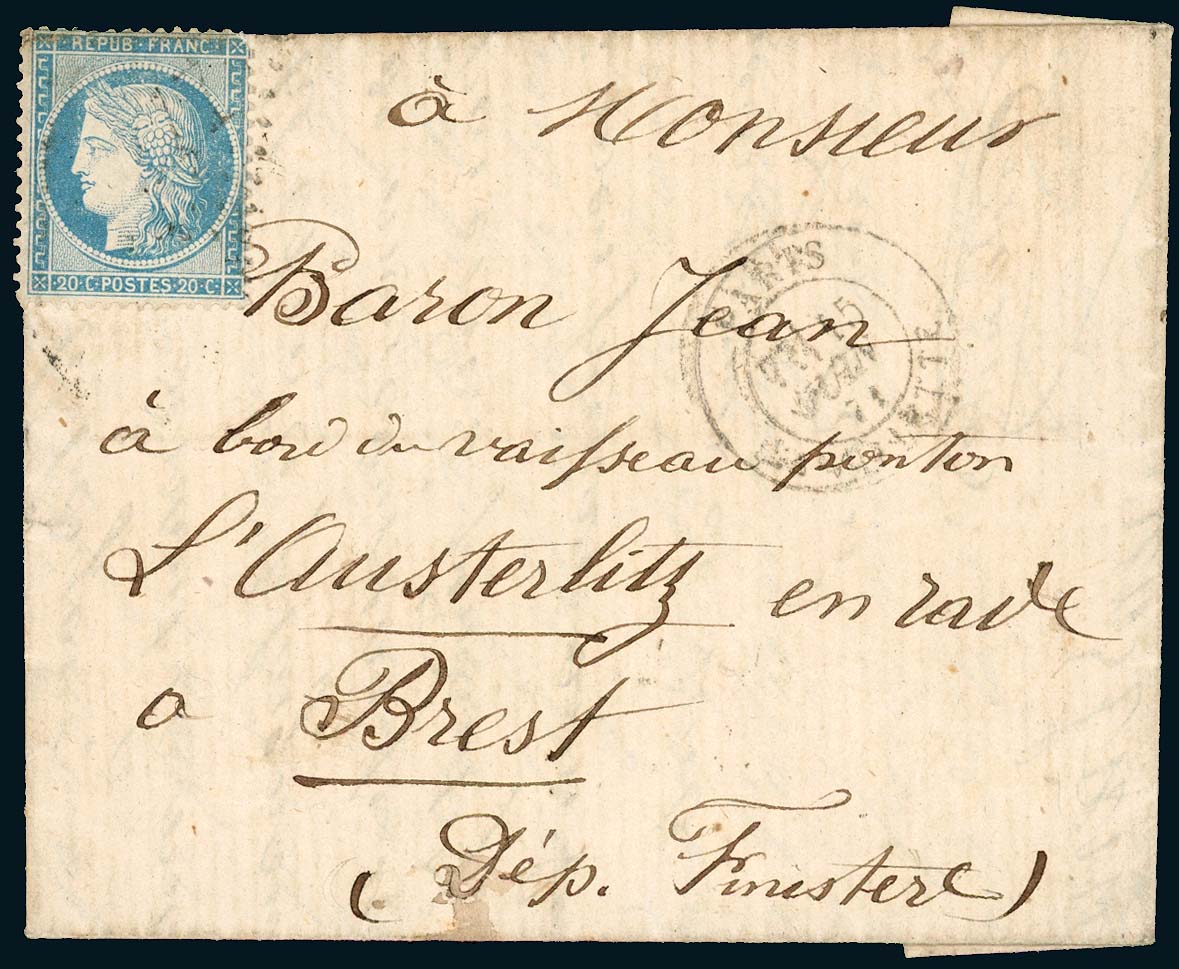 REPUB · FRANC ·
20 · C · POSTES · 20 · C ·
à Monsieur
Baron Jean
à bord du vaisseau ponton
L'Austerlitz en rade
a Brest
(Dép. Finistere)
PARIS
15
JUIN
71